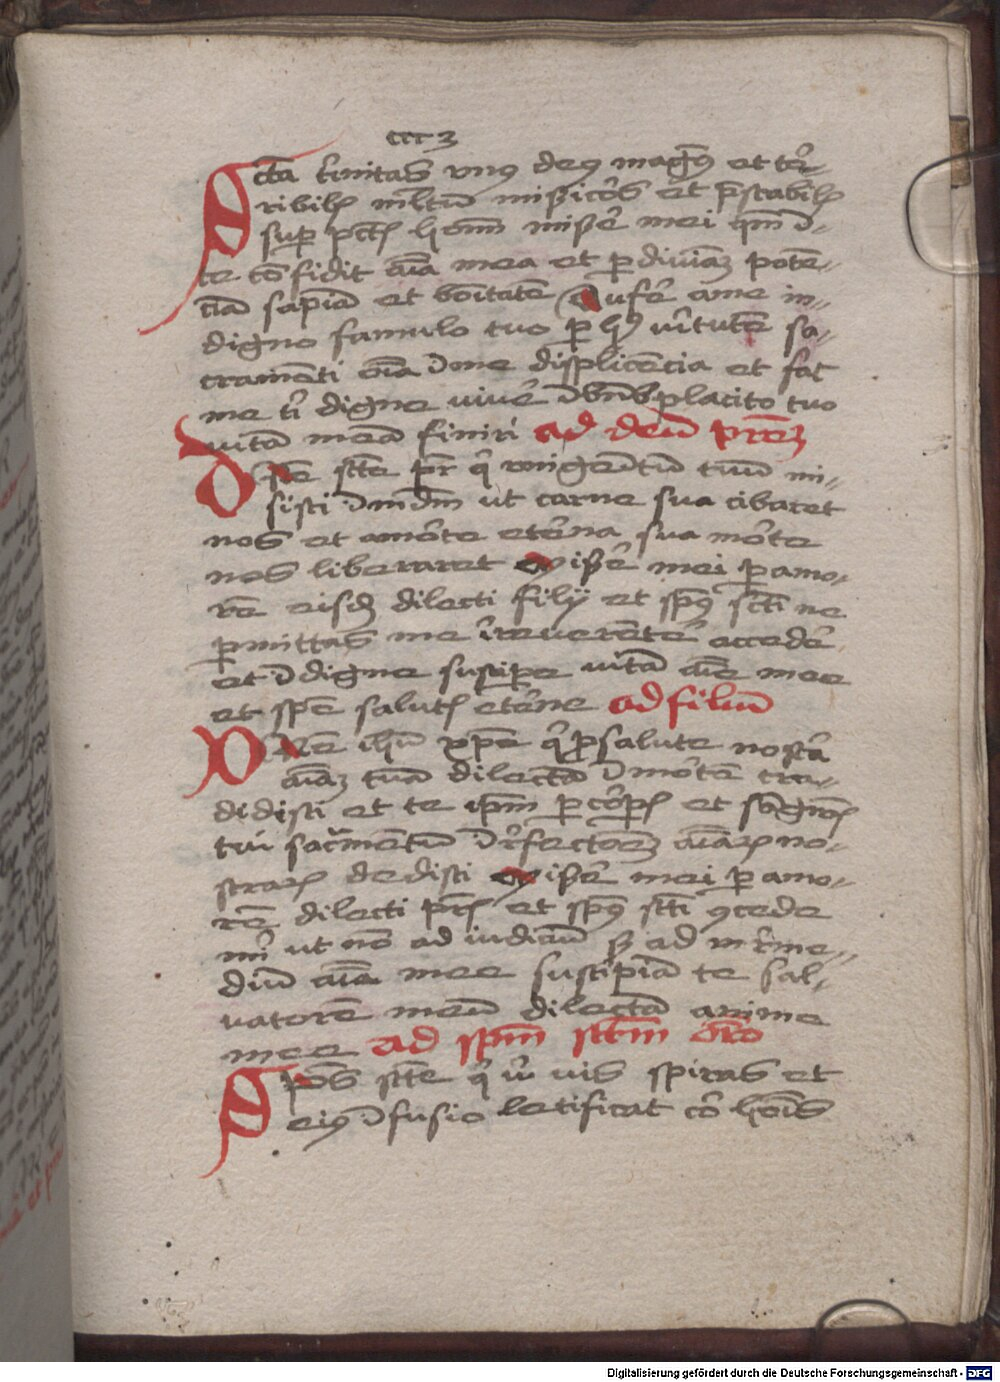 cccz
Scta t'initas vnus deus magnus et ter-
ribilis m̄ltum misericors et p̄stabilis
sup pctis hominum miser'e mei qm̄ ī
te confidit aīa mea et per diuinam poten-
ciam sapiam et bonitatem Aufer ame in-
digno famulo tuo per huius virtutem sa-
cramenti oīa ī me displicencia et fac
me tibi digne viuer'e ī bn̄placito tuo
vitam meam finiri ad deum patrem
Dne scte pr̄ qui vnigenitum tuum mi-
sisti ī mūdum ut carne sua cibaret
nos et amorte eterna sua morte
nos liberaret miser'e mei per amo-
rem eiusdem dilecti filij et spūs scti ne
permittas me irreuerenter accedere
et ī digne suscipere vitam aīe mee
et spem salutis eterne ad filium
Dne ihū xp̄e qui pro salute nostra
aīam tuam dilectam ī mortem tra-
didisti et te ip̄m per corporis et sanguinis
tui sacramentum ī refectionem aīarum no-
strarum dedisti miser'e mei per amo-
rem dilecti pr̄is et spūs scti concede
mihi ut non ad iudicium sed ad in reme-
dium aīe mee suscipiam te sal-
vatorem meum dilectam anime
mee ad sp̄m sctm̄ or̄o
Sp̄us scte qui vbi vis spiras et
eius ī fusio letificat cor hoīs
Digitalisierung gefördert durch die Deutsche Forschungsgemeinschaft - DFG